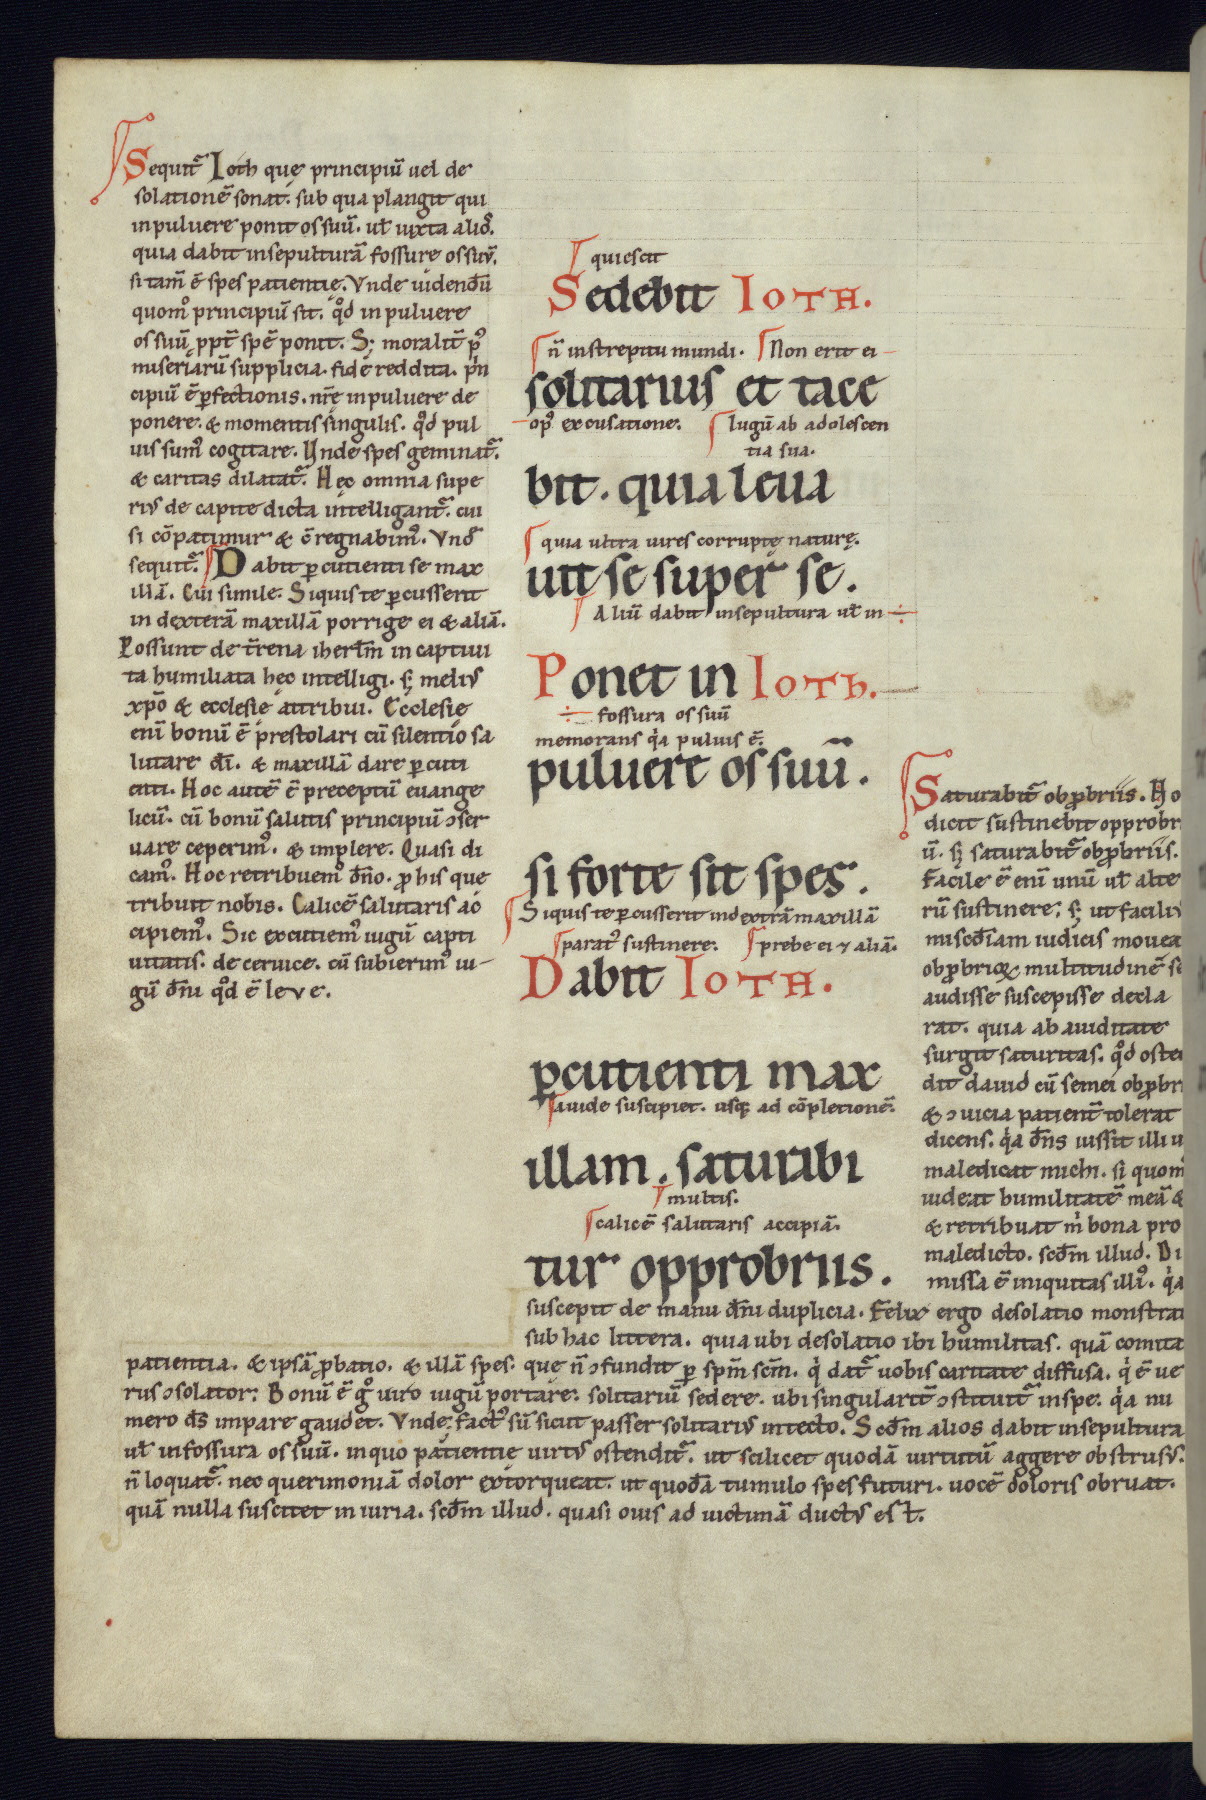 Sequit̄ Ioth que principiū uel de
solationē sonat. sub qua plangit qui
in puluere ponit os suū. ut̄ iuxta alios.
quia dabit in sepulturā fossure os suū.
si tam̄ ē spes patientie. Vnde uidendū
quom̊ principiū sit. qd̊ in puluere
os suū ppt̄ spē ponit. S; moralit̄ p̊
miseriarū supplicia. fide reddita. pin
cipiū ē ꝑfectionis. nr̄e in puluere de
ponere. & momentis singulis. qd̊ pul
uis sum̊ cogitare. Vnde spes geminat̄.
& caritas dilatat̄. Hec omnia supe
rius de capite dicta intelligant̄. cui
si cōpatimur & ↄregnabim̊. Vnd̊
sequit̄. Dabit ꝑcutienti se max
illā. Cui simile. Siquis te ꝑcusserit
in dexterā maxillā porrige ei & aliā.
Possunt de t̄rena iherlm̄ in captiui
ta humiliata hec intelligi. sȝ melius
xp̄o & ecclesie attribui. Ecclesie
enī bonū ē prestolari cū silentio sa
lutare dī. & maxillā dare ꝑcuti
enti. Hoc autē ē preceptū euange
licū. cū bonū salutis principiū ↄser
uare ceperim̊. & implere. Quasi di
cam̊. Hoc retribuem̊ dn̄o. ꝓ his que
tribuit nobis. Calicē salutaris ac
cipiem̊. Sic excutiem̊ iugū capti
uitatis. de ceruice. cū subierim̊ iu-
gū dn̄i qd̊ ē leve.
quiescit
Sedebit IOTH.
n̄ in strepitu mundi. Non erit ei
solitarius et tace
op̊ excusatione. Iugū ab adolescen
tia sua.
bit. quia leua
quia ultra uires corrupte nature.
uit se super se.
Aliū dabit in sepultura ut̄ in ÷
Ponet in IOTh.
÷ fossura os suū
memorans q̇a puluis ē.
puluere os suū.
si forte sit spes.
Siquis te ꝑcusserit in dextrā maxillā
parat̊ sustinere. prebe ei ⁊ aliā.
Dabit IOTH.
ꝑcutienti max
auide suscipiet. usq; ad cōpletionē.
illam. saturabi
multis.
calicē salutaris accipiā.
tur opprobriis.
Saturabit̄ obꝓbriis. Ho
dicit sustinebit opprobr
ū. sȝ saturabit̄ obꝓbriis.
facile ē enī unū ut̄ alte
rū sustinere. sȝ ut facilius
misc̄diam iudicis mouea
obꝓbrioꝝ multitudinē se
audisse suscepisse decla
rat. quia ab auiditate
surgit saturitas. qd̊ osten
dit dauid cū semei obꝓbr
& ↄuicia patient̄ tolerat
dicens. q̇a dn̄s iussit illi u
maledicat michi. si quom̊
uideat humilitatē meā &
& retribuat ṁ bona pro
maledicto. scd̄m illud. Di
missa ē iniquitas illi̊. q̇a
suscepit de manu dn̄i duplicia. Felix ergo desolatio monstrat
sub hac littera. quia ubi desolatio ibi humilitas. quā comita
patientia. & ipsā ꝓbatio. & illā spes. que n̄ ↄfundit ꝑ spm̄ scm̄. q̇ dat̄ uobis caritate diffusa. q̇ ē ue
rus ↄsolator. Bonū ē g̊ uiro iugū portare. solitariū sedere. ubi singularit̄ ↄstituit̄ in spe. q̇a nu
mero ds̄ impare gaudet. Vnde. fact̊ sū sicut passer solitarius in tecto. Scd̄m alios dabit in sepultura
ut̄ in fossura os suū. in quo patientie uirtus ostendit̄. ut scilicet quodā uirtutū aggere obstrusus.
n̄ loquat̄. nec querimoniā dolor extorqueat. ut quodā tumulo spes futuri. uocē doloris obruat.
quā nulla suscitet iniuria. scd̄m illud. quasi ouis ad uictimā ductus est.